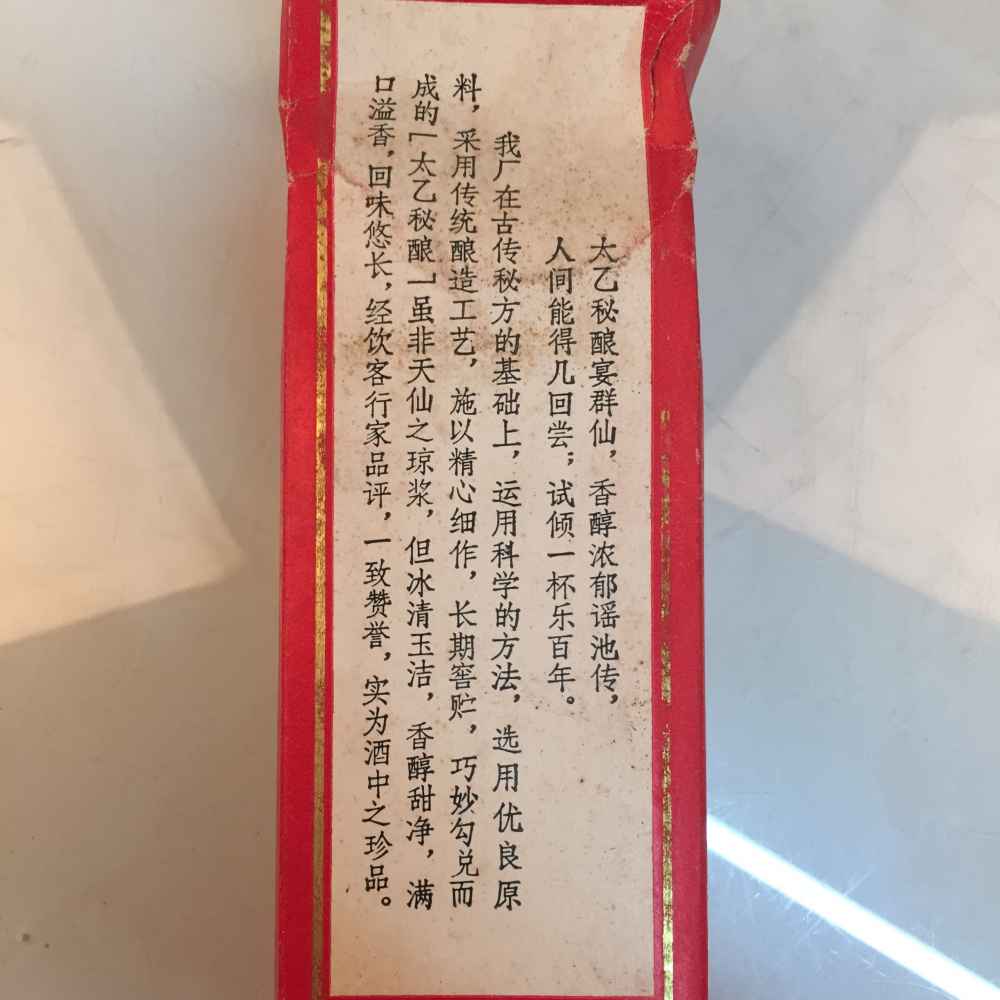 太乙秘酿宴群仙，香醇浓郁谣池传，
人间能得几回尝；试倾一杯乐百年。
我厂在古传秘方的基础上，运用科学的方法，选用优良原
料，采用传统酿造工艺，施以精心细作，长期窖贮，巧妙勾兑而
成的「太乙秘酿」虽非天仙之琼浆，但冰清玉洁，香醇甜净，满
口溢香，回味悠长，经饮客行家品评，一致赞誉，实为酒中之珍品。